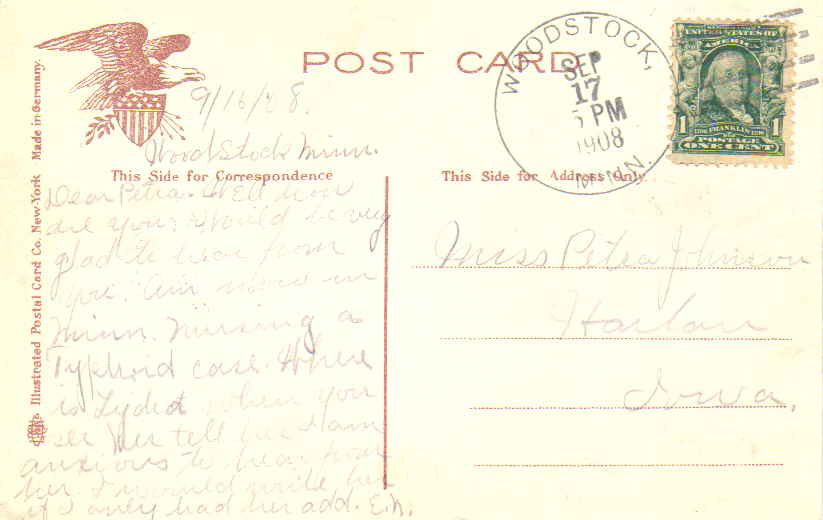 POST CARD
WOODSTOCK,
SEP
17
5 PM
1908
MINN.
UNITED STATES OF
AMERICA
1 1
FRANKLIN
POSTAGE
ONE CENT
Illustrated Postal Card Co. New-York Made in Germany.
9/16/08.
Woodstock Minn.
This Side for Correspondence
This Side for Address Only.
Dear Petra. Well how
are you. Would be very
glad to hear from
you. Am now in
Minn. nursing a
Typhoid case. Where
is Lydia when you
see her tell her I am
anxious to hear from
her. I would write her
if I only had her add. E.N.
Miss Petra Johnson
Harlan
Iowa,